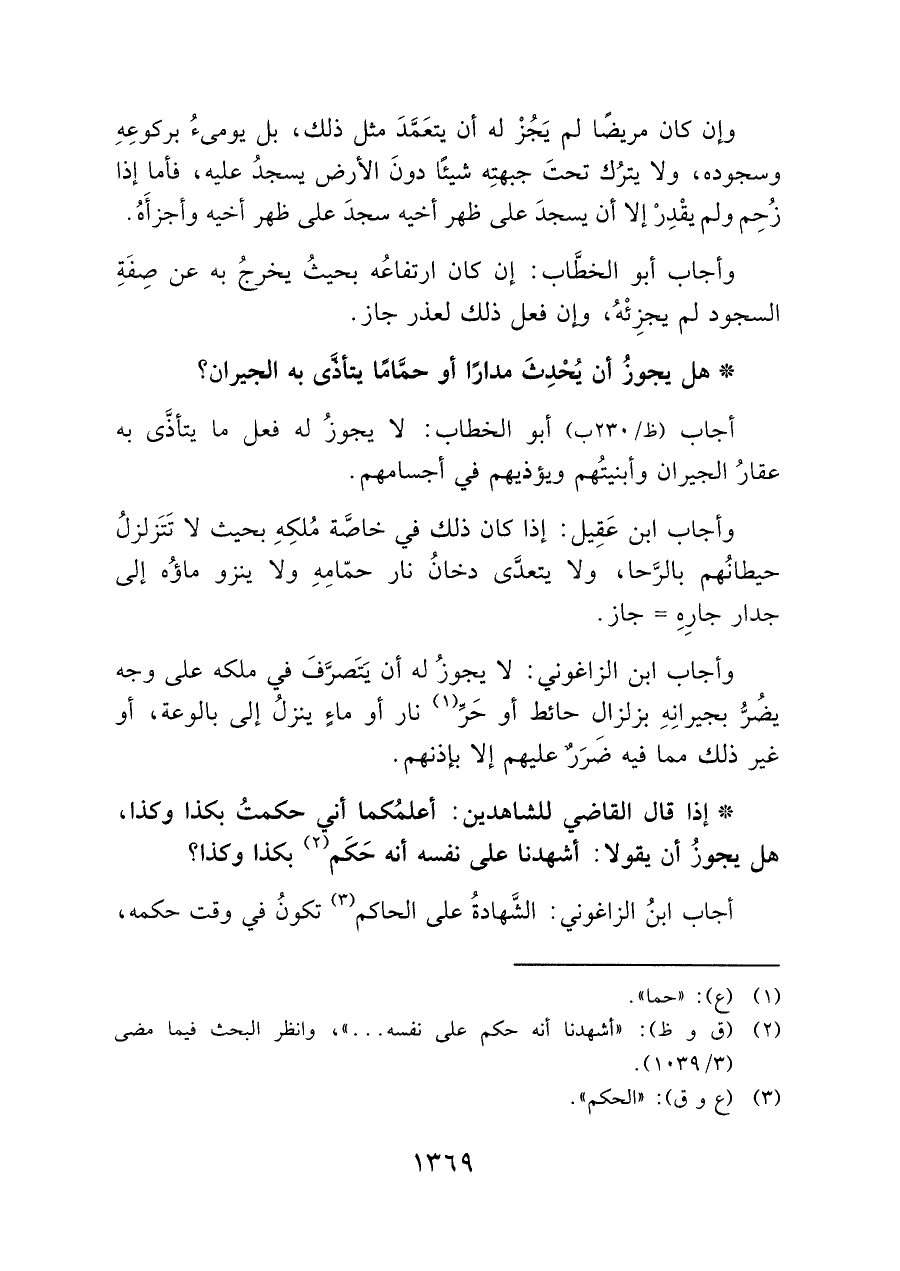 وإن كان مريضًا لم يَجُزْ له أن يتعَمَّدَ مثل ذلك، بل يومىءُ بركوعِهِ
وسجوده، ولا يترُك تحتَ جبهتِه شيئًا دونَ الأرض يسجدُ عليه، فأما إذا
زُحِم ولم يقْدِرْ إلا أن يسجدَ على ظهر أخيه سجدَ على ظهر أخيه وأجزأَهُ.
وأجاب أبو الخطَّاب: إن كان ارتفاعُه بحيثُ يخرجُ به عن صِفَةِ
السجود لم يجزِئْهُ، وإن فعل ذلك لعذر جاز.
* هل يجوزُ أن يُحْدِثَ مدارًا أو حمَّامًا يتأذَّى به الجيران؟
أجاب (ظ/٢٣٠ب) أبو الخطاب: لا يجوزُ له فعل ما يتأذَّى به
عقارُ الجيران وأبنيتُهم ويؤذيهم في أجسامهم.
وأجاب ابن عَقِيل: إذا كان ذلك في خاصَّة مُلكِهِ بحيث لا تَتَزلزلُ
حيطانُهم بالرَّحا، ولا يتعدَّى دخانُ نار حمّامِهِ ولا ينزو ماؤُه إلى
جدار جارِهِ = جاز.
وأجاب ابن الزاغوني: لا يجوزُ له أن يَتَصرَّفَ في ملكه على وجه
يضُرُّ بجيرانِهِ بزلزال حائط أو حَرِّ(١) نار أو ماءٍ ينزلُ إلى بالوعة، أو
غير ذلك مما فيه ضَرَرٌ عليهم إلا بإذنهم.
* إذا قال القاضي للشاهدين: أعلمُكما أني حكمتُ بكذا وكذا،
هل يجوزُ أن يقولا: أشهدنا على نفسه أنه حَكَم(٢) بكذا وكذا؟
أجاب ابنُ الزاغوني: الشَّهادةُ على الحاكم(٣) تكونُ في وقت حكمه،
(١) (ع): «حما».
(٢) (ق و ظ): «أشهدنا أنه حكم على نفسه...»، وانظر البحث فيما مضى
(٣/ ١٠٣٩).
(٣) (ع و ق): «الحكم».
١٣٦٩